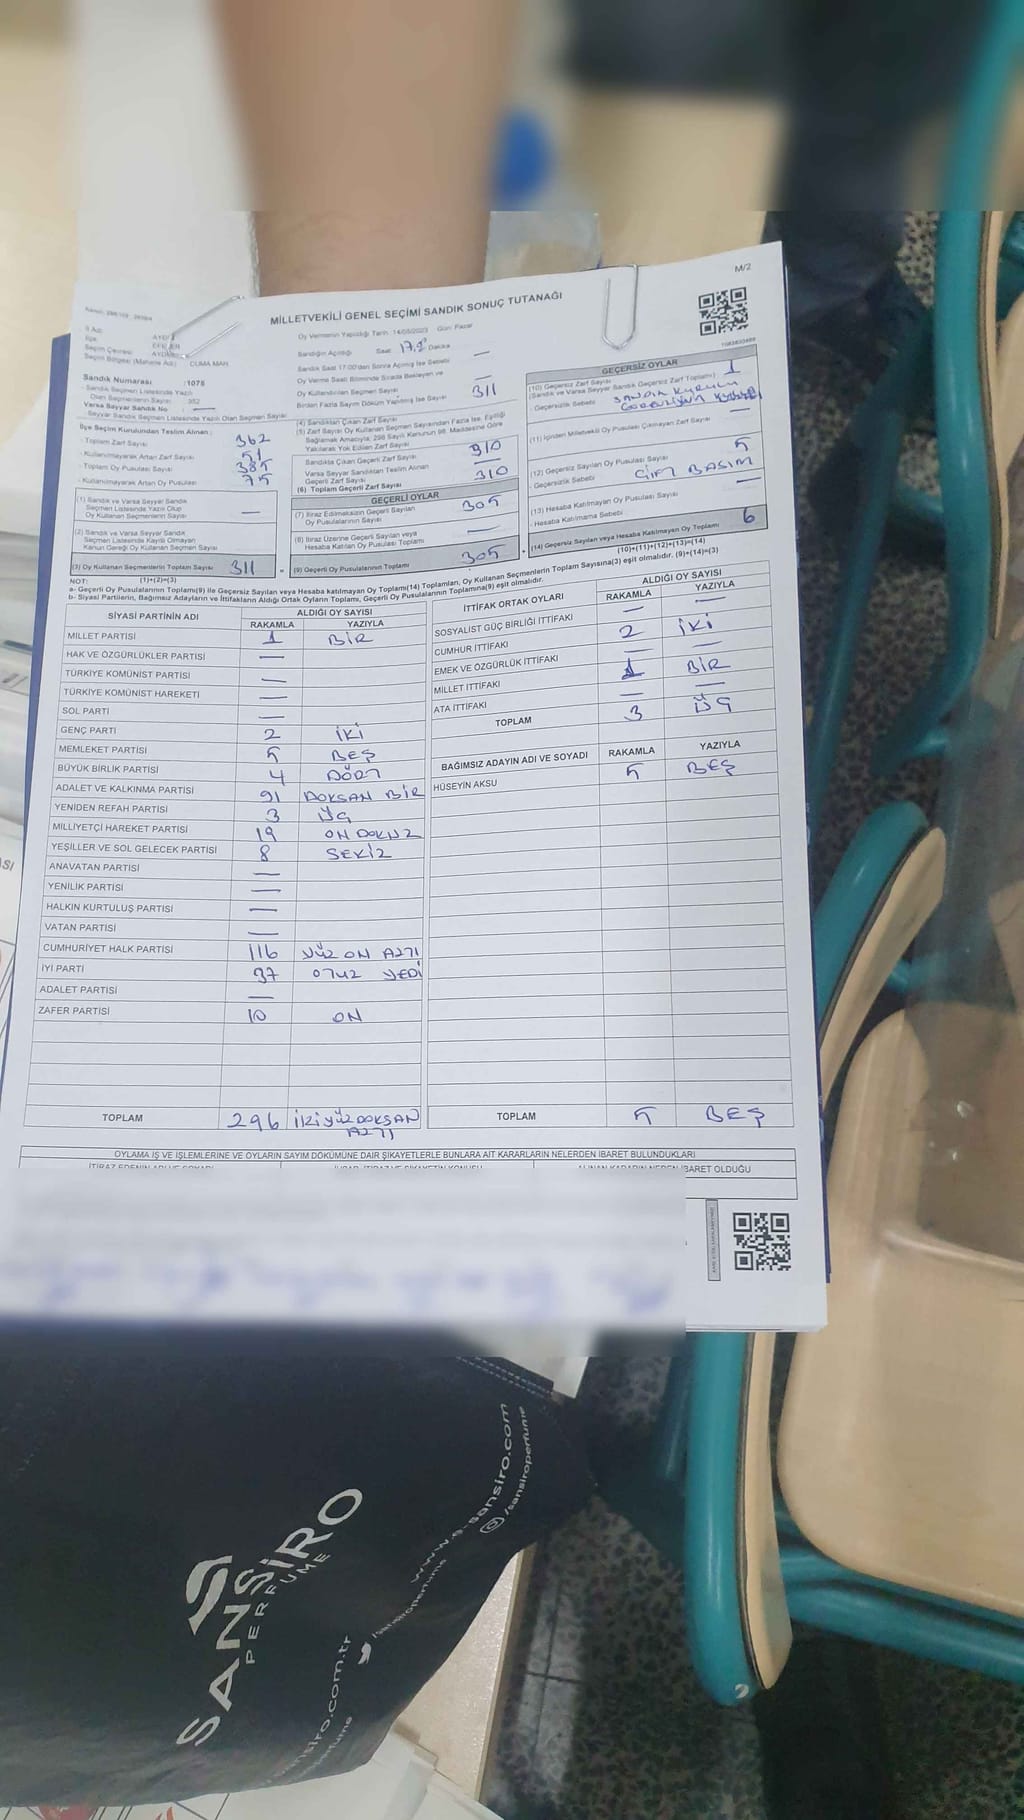 M/2
MİLLETVEKİLİ GENEL SEÇİMİ SANDIK SONUÇ TUTANAĞI
İl Adı AYDIN
İlçe EFELER
Seçim Çevresi AYDIN
Seçim Bölgesi (Mahalle Adı) CUMA MAH
Sandık Numarası :1076
- Sandık Seçmen Listesinde Yazılı
Olan Seçmenlerin Sayısı 352
Varsa Seyyar Sandık No
- Seyyar Sandık Seçmen Listesinde Yazılı Olan Seçmen Sayısı
Oy Vermenin Yapıldığı Tarih :14/05/2023 Gün: Pazar
Sandığın Açıldığı Saat Dakika
Sandık Saat 17:00'den Sonra Açılmış İse Sebebi —
Oy Verme Saati Bitiminde Sırada Bekleyen ve
Oy Kullandırılan Seçmen Sayısı —
Birden Fazla Sayım Döküm Yapılmış İse Sayısı 311
İlçe Seçim Kurulundan Teslim Alınan;
- Toplam Zarf Sayısı 362
- Kullanılmayarak Artan Zarf Sayısı 51
- Toplam Oy Pusulası Sayısı 385
- Kullanılmayarak Artan Oy Pusulası 75
(1) Sandık ve Varsa Seyyar Sandık
Seçmen Listesinde Yazılı Olup
Oy Kullanan Seçmenlerin Sayısı —
(2) Sandık ve Varsa Seyyar Sandık
Seçmen Listesinde Kayıtlı Olmayan
Kanun Gereği Oy Kullanan Seçmen Sayısı
(3) Oy Kullanan Seçmenlerin Toplam Sayısı 311
(1)+(2)=(3)
(4) Sandıktan Çıkan Zarf Sayısı
(5) Zarf Sayısı Oy Kullanan Seçmen Sayısından Fazla İse, Eşitliği
Sağlamak Amacıyla; 298 Sayılı Kanunun 98. Maddesine Göre
Yakılarak Yok Edilen Zarf Sayısı
Sandıkta Çıkan Geçerli Zarf Sayısı 310
Varsa Seyyar Sandıktan Teslim Alınan
Geçerli Zarf Sayısı —
(6) Toplam Geçerli Zarf Sayısı 310
GEÇERLİ OYLAR
(7) İtiraz Edilmeksizin Geçerli Sayılan
Oy Pusulalarının Sayısı 305
(8) İtiraz Üzerine Geçerli Sayılan veya
Hesaba Katılan Oy Pusulası Toplamı —
(9) Geçerli Oy Pusulalarının Toplamı 305
GEÇERSİZ OYLAR
(10) Geçersiz Zarf Sayısı 1
(Sandık ve Varsa Seyyar Sandık Geçersiz Zarf Toplamı)
- Geçersizlik Sebebi SANDIK KURULU
(11) İçinden Milletvekili Oy Pusulası Çıkmayan Zarf Sayısı —
(12) Geçersiz Sayılan Oy Pusulası Sayısı 5
- Geçersizlik Sebebi ÇİFT BASIM
(13) Hesaba Katılmayan Oy Pusulası Sayısı —
- Hesaba Katılmama Sebebi
(14) Geçersiz Sayılan veya Hesaba Katılmayan Oy Toplamı 6
(10)+(11)+(12)+(13)=(14)
NOT:
a- Geçerli Oy Pusulaları Toplamı(9) ile Geçersiz Sayılan veya Hesaba katılmayan Oy Toplamı(14) Toplamları, Oy Kullanan Seçmenlerin Toplam Sayısına(3) eşit olmalıdır. (9)+(14)=(3)
b- Siyasi Partilerin, Bağımsız Adayların ve İttifakların Aldığı Ortak Oyların Toplamı, Geçerli Oy Pusulalarının Toplamına(9) eşit olmalıdır.
SİYASİ PARTİNİN ADI ALDIĞI OY SAYISI
RAKAMLA YAZIYLA
MİLLET PARTİSİ 1 BİR
HAK VE ÖZGÜRLÜKLER PARTİSİ —
TÜRKİYE KOMÜNİST PARTİSİ —
TÜRKİYE KOMÜNİST HAREKETİ —
SOL PARTİ —
GENÇ PARTİ 2 İKİ
MEMLEKET PARTİSİ 5 BEŞ
BÜYÜK BİRLİK PARTİSİ 4 DÖRT
ADALET VE KALKINMA PARTİSİ 91 DOKSAN BİR
YENİDEN REFAH PARTİSİ 3 ÜÇ
MİLLİYETÇİ HAREKET PARTİSİ 19 ON DOKUZ
YEŞİLLER VE SOL GELECEK PARTİSİ 8 SEKİZ
ANAVATAN PARTİSİ —
YENİLİK PARTİSİ —
HALKIN KURTULUŞ PARTİSİ —
VATAN PARTİSİ —
CUMHURİYET HALK PARTİSİ 116 YÜZ ON ALTI
İYİ PARTİ 37 OTUZ YEDİ
ADALET PARTİSİ —
ZAFER PARTİSİ 10 ON
TOPLAM 296 İKİYÜZDOKSAN
ALTI
İTTİFAK ORTAK OYLARI ALDIĞI OY SAYISI
RAKAMLA YAZIYLA
SOSYALİST GÜÇ BİRLİĞİ İTTİFAKI — —
CUMHUR İTTİFAKI 2 İKİ
EMEK VE ÖZGÜRLÜK İTTİFAKI — —
MİLLET İTTİFAKI 1 BİR
ATA İTTİFAKI — —
TOPLAM 3 ÜÇ
BAĞIMSIZ ADAYIN ADI VE SOYADI RAKAMLA YAZIYLA
HÜSEYİN AKSU 5 BEŞ
TOPLAM 5 BEŞ
OYLAMA İŞ VE İŞLEMLERİNE VE OYLARIN SAYIM DÖKÜMÜNE DAİR ŞİKAYETLERLE BUNLARA AİT KARARLARIN NELERDEN İBARET BULUNDUKLARI
SANSİRO
PERFUME
www.e-sansiro.com
/sansiroperfume
/sansiroperfume
sansiro.com.tr